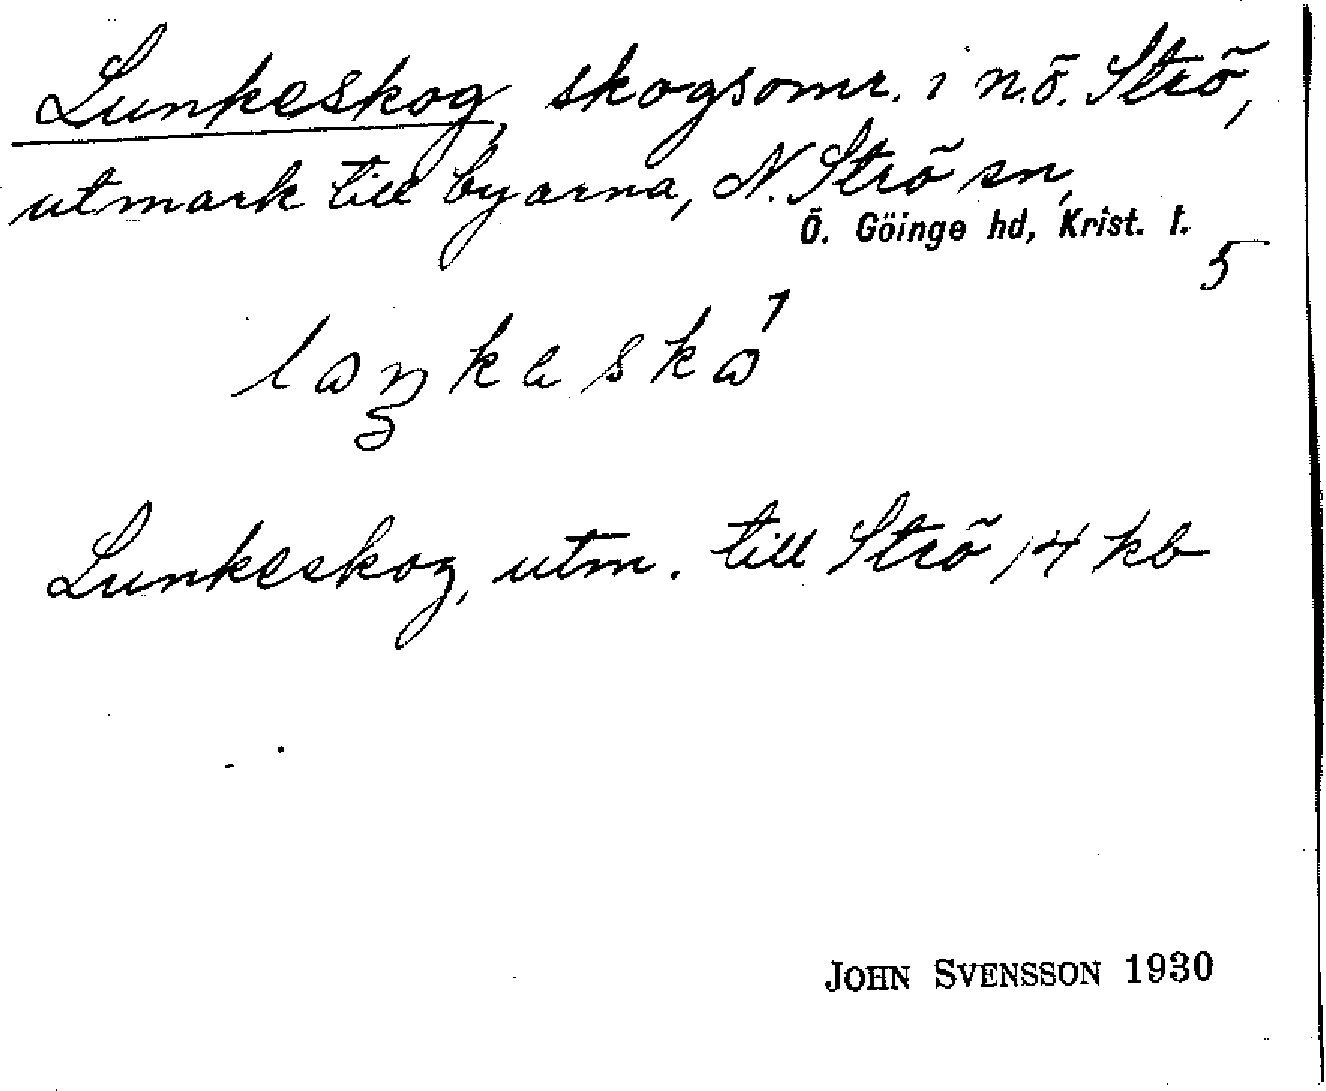 Lunkeskog, skogsomr. i n.ö. Strö,
utmark till byarna, N. Strö sn,
Ö. Göinge hd, Krist. l.
5
Lunkeskog, utm. till Strö /4 kb
JOHN SVENSSON 1930